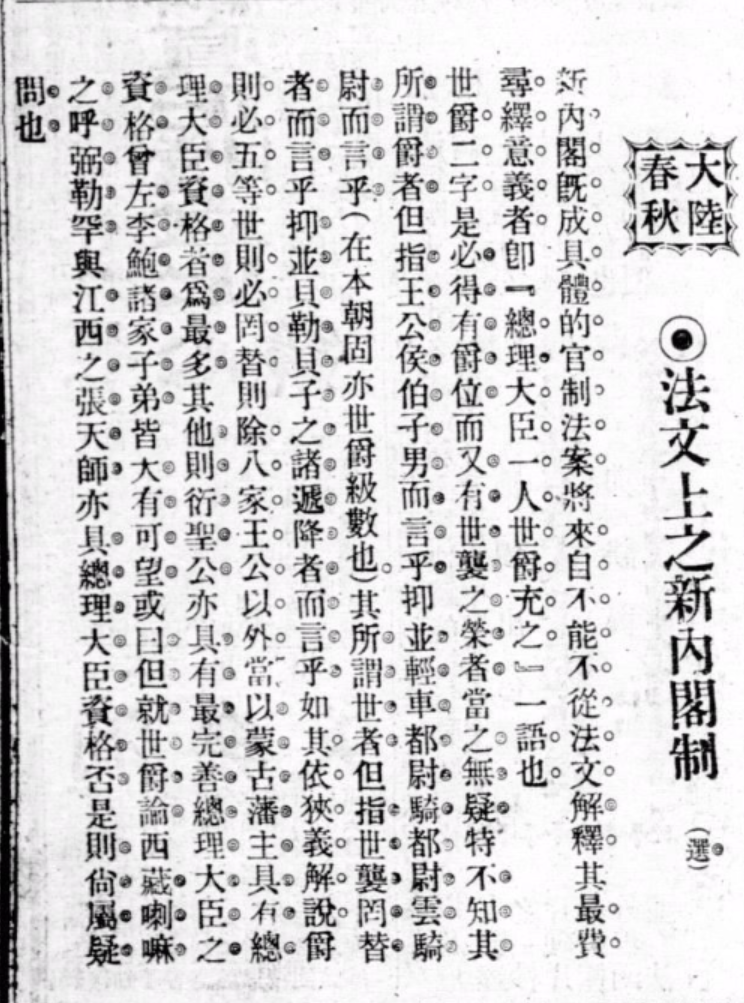 大陸
春秋
◉法文上之新內閣制
(選)
新內閣旣成具體的官制法案將來自不能不從法文解釋其最費
尋繹意義者卽『總理大臣一人世爵充之』一語也
世爵二字是必得有爵位而又有世襲之榮者當之無疑特不知其
所謂爵者但指王公侯伯子男而言乎抑並輕車都尉騎都尉雲騎
尉而言乎(在本朝固亦世爵級數也)其所謂世者但指世襲罔替
者而言乎抑並貝勒貝子之諸遞降者而言乎如其依狹義解說爵
則必五等世則必罔替則除八家王公以外當以蒙古藩主具有總
理大臣資格者爲最多其他則衍聖公亦具有最完善總理大臣之
資格曾左李鮑諸家子弟皆大有可望或曰但就世爵論西藏喇嘛
之呼弼勒罕與江西之張天師亦具總理大臣資格否是則尙屬疑
問也